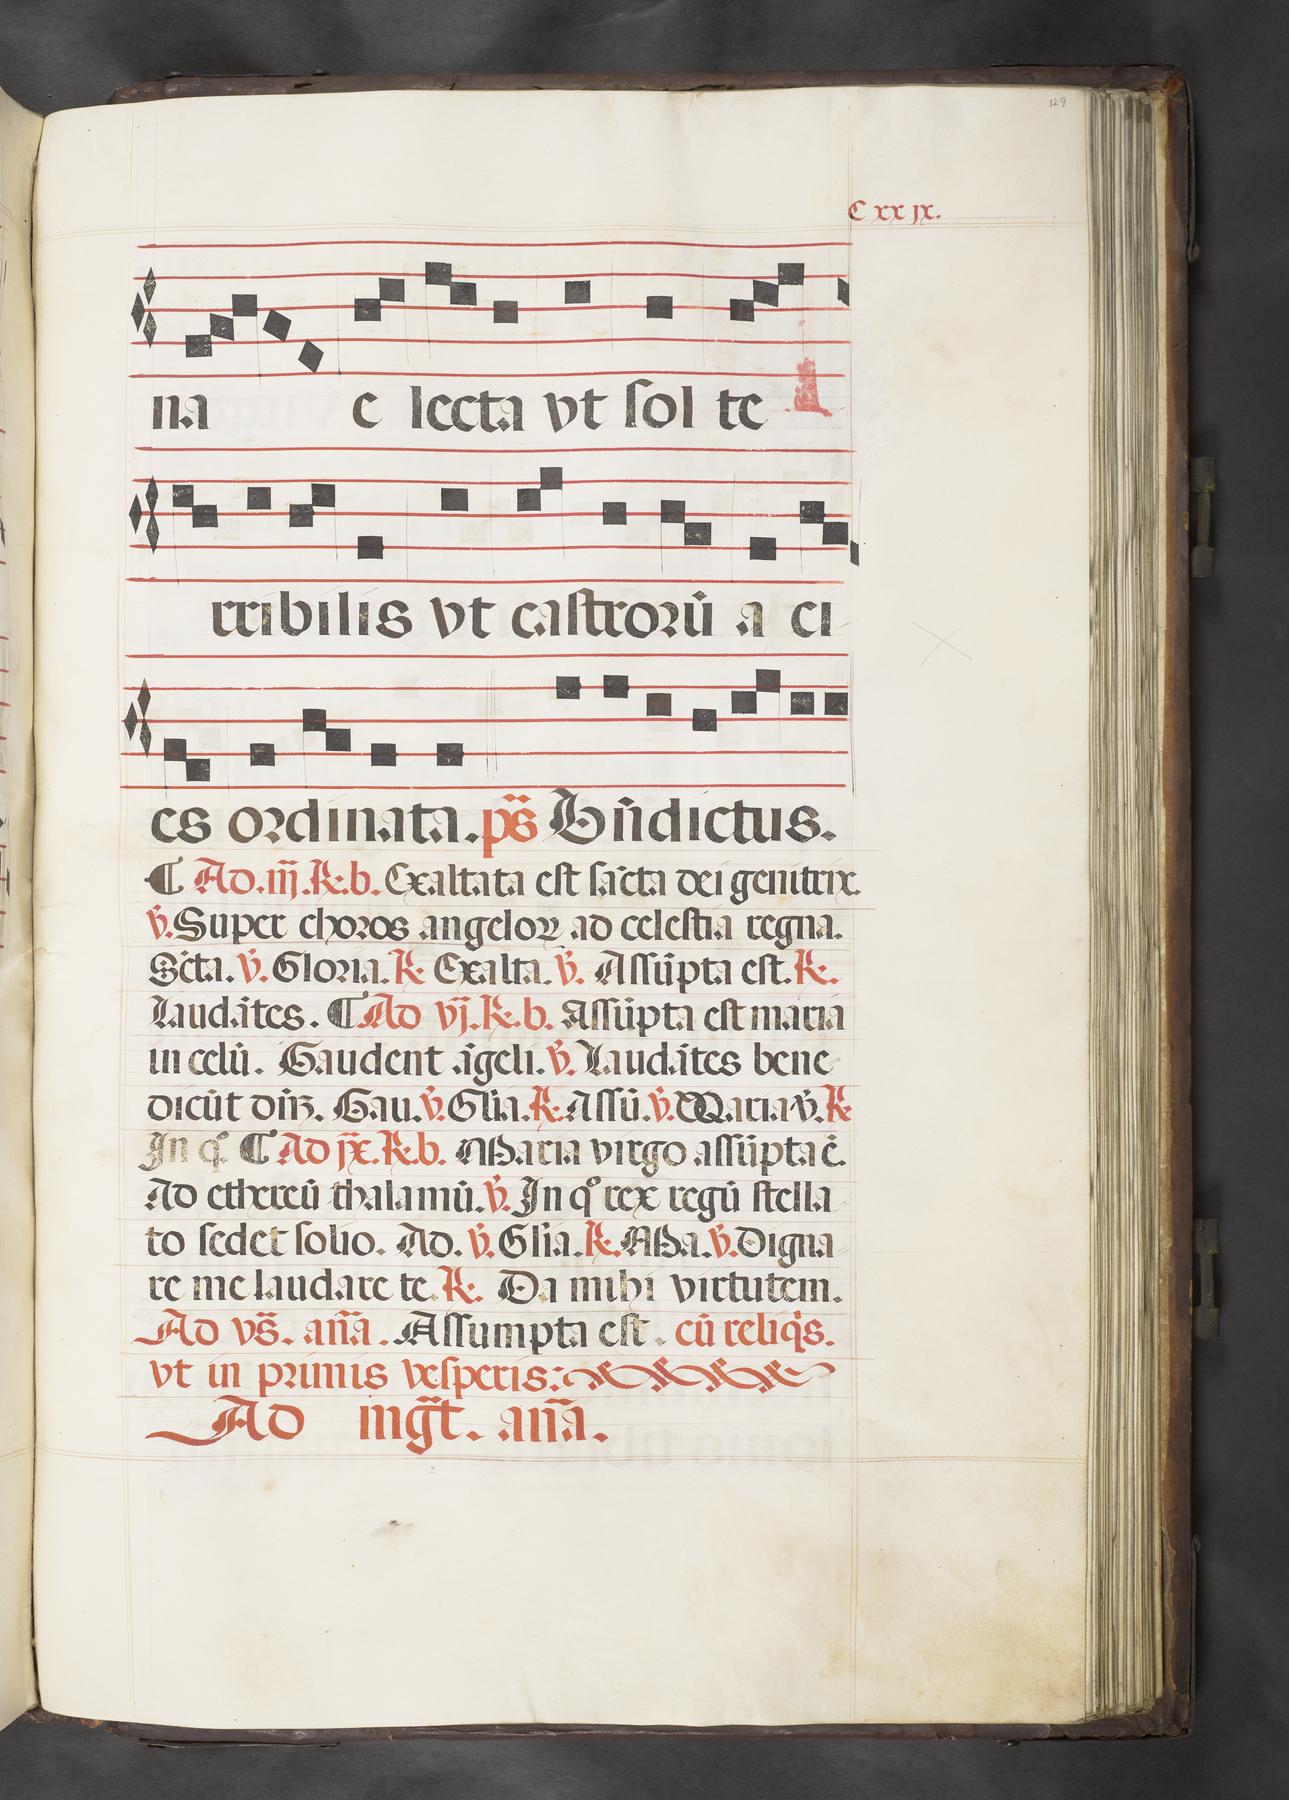 129
C xx jx.
na e lecta vt sol te
rribilis vt castrorū a ci
es ordinata. ps̄ Bn̄dictus.
¶ Ad. iij. R. b. Exaltata est sācta dei genitrix.
v̄. Super choros angeloꝝ ad celestia regna.
Sc̄ta. v̄. Gloria. R. Exalta. v̄. Assūpta est. R.
Laudātes. ¶ Ad vj. R. b. Assūpta est maria
in celū. Gaudent āgeli. v̄. Laudātes bene
dicūt dn̄m. Gau. v̄. Glīa. R. Assū. v̄. Maria v̄. R
In qͦ ¶ Ad jx. R. b. Maria virgo assūpta ē.
Ad ethereū thalamū. v̄. In qͦ rex regū stella
to sedet solio. Ad. v̄. Glīa. R. Ma. v̄. Digna
re me laudare te. R. Da mihi virtutem.
Ad vs̄. an̄a. Assumpta est. cū reliqs.
vt in primis vesperis:
Ad mgt̄. an̄a.